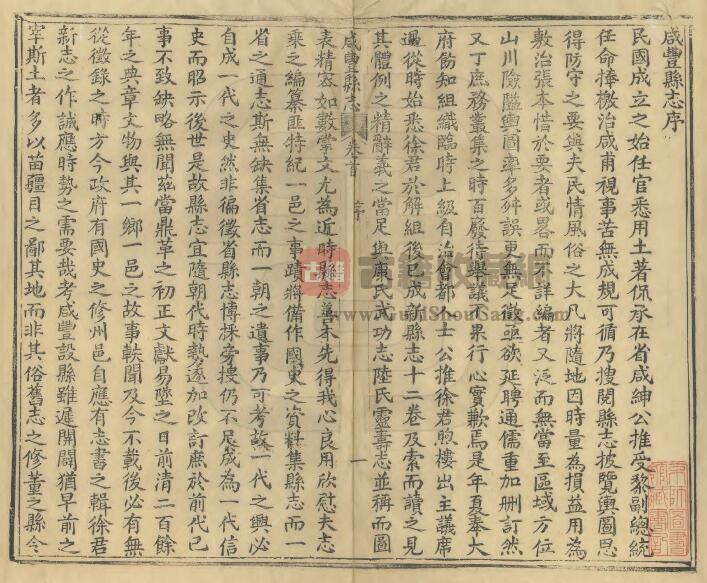 咸豐縣志序
民國成立之始任官悉用土著侃承在省咸紳公推受黎副總統
任命捧檄治咸甫視事苦無成規可循乃搜閱縣志披覽輿圖思
得防守之要與夫民情風俗之大凡將隨地因時量為損益用為
敷治張本惜於要者或畧而不詳編者又泛而無當至區域方位
山川險隘輿圖率多舛誤更無足徵亟欲延聘通儒重加刪訂然
又丁庶務叢集之時百廢待舉議未果行心實歉焉是年夏奉大
府飭知組織臨時上級自治會都人士公推徐君煦樓出主議席
過從時始悉徐君於解組後已成新縣志十二卷及索而讀之見
其體例之精辭義之當足與康氏武功志陸氏靈壽志並稱而圖
咸豐縣志
卷首
序
一
表精密如數掌文尤為近時縣志善本先得我心良用欣慰夫志
乘之編纂匪特紀一邑之事蹟將備作國史之資料集縣志而一
省之通志斯無缺集省志而一朝之遺事乃可考故一代之興必
自成一代之史然非徧徵省縣志博採旁搜仍不足成為一代信
史而昭示後世是故縣志宜隨朝代時勢遞加改訂庶於前代已
事不致缺略無聞茲當鼎革之初正文獻易墜之日前清二百餘
年之典章文物與其一鄉一邑之故事軼聞及今不載後必有無
從徵錄之時方今政府有國史之修州邑自應有志書之輯徐君
新志之作誠應時勢之需要哉考咸豐設縣雖遲開闢猶早前之
宰斯土者多以苗疆目之鄙其地而非其俗舊志之修董之縣令
古籍
古籍收藏網
www.GuJiShouCang.com